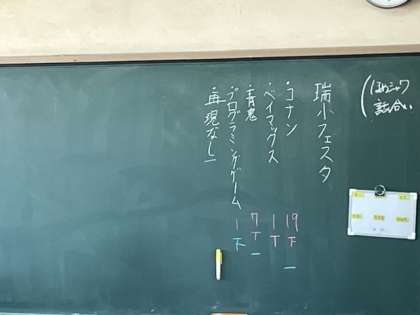 (ほめシャワ
話合い
瑞小フェスタ
・コナン 19 下 一
・ベイマックス 1 下
・青鬼 7 下 一
・プログラミングゲーム 1 下
・再現なし